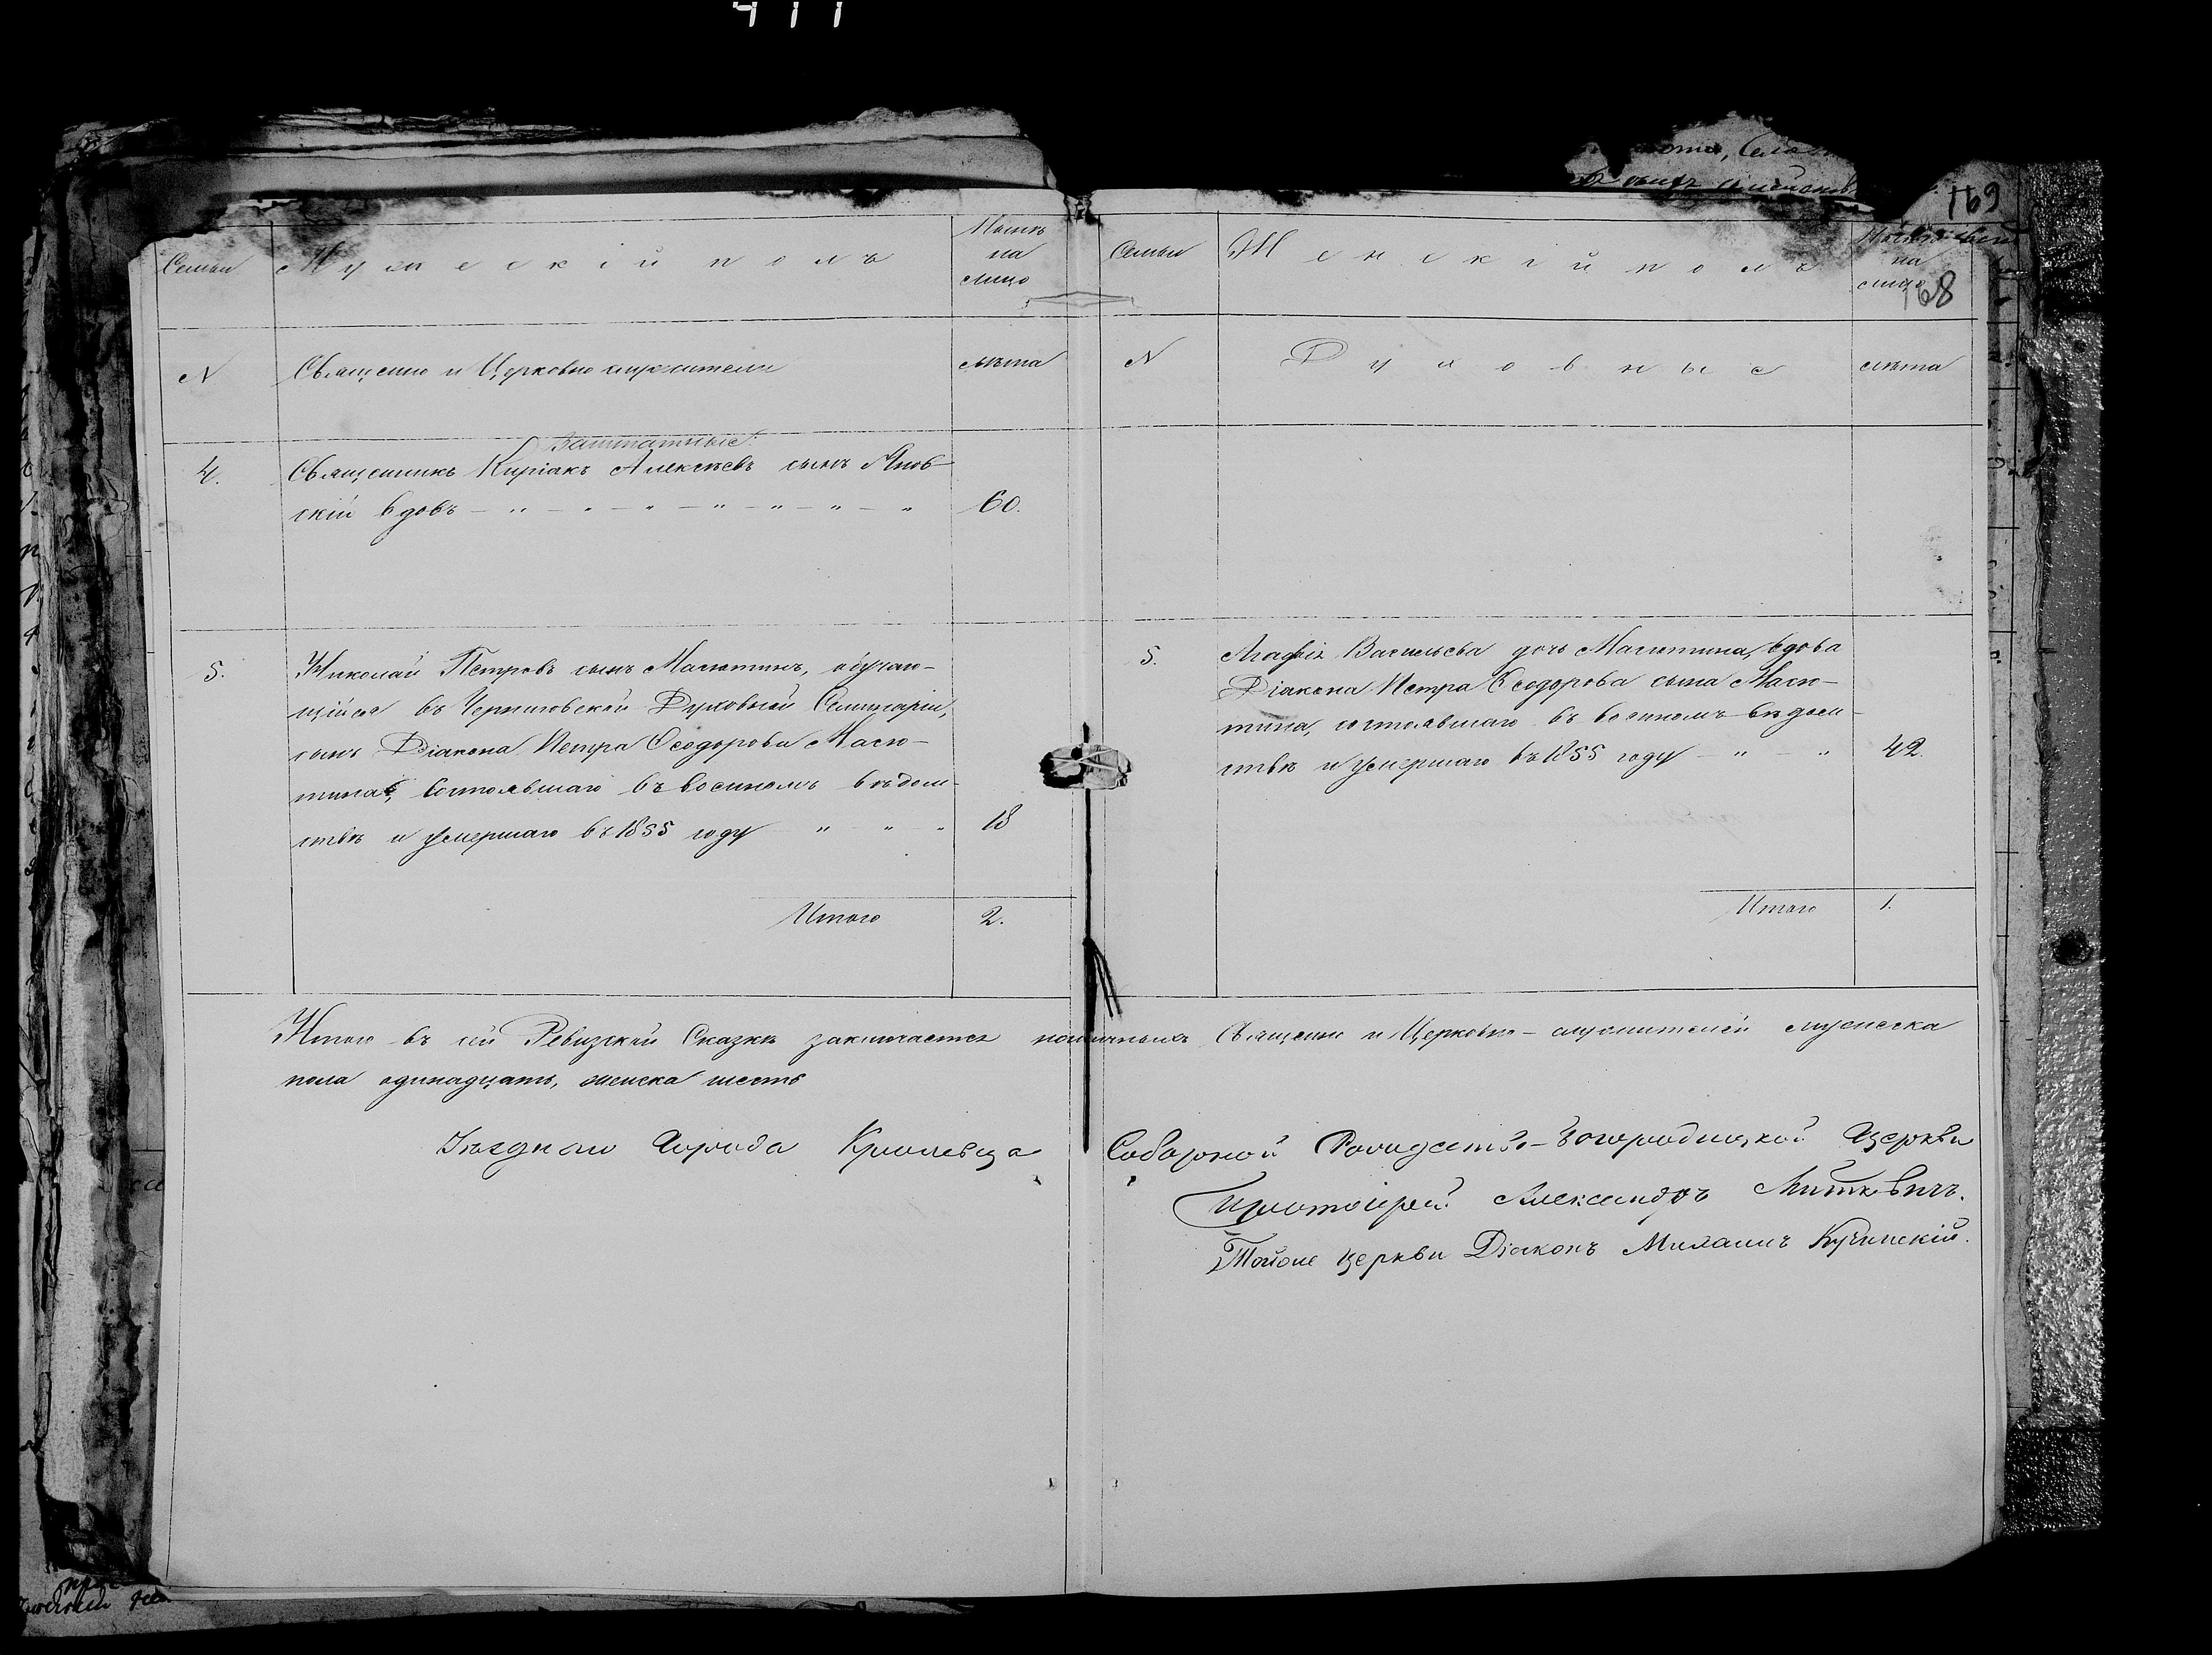 411
169
168
Семьи
Мужескій полъ
Нынѣ
на
лицо
N
Священно и Церковно служители
лѣта
Заштатные:
4.
Священникъ Киріакъ Алексѣевъ сынъ Янов-
скій вдовъ
60.
5.
Николай Петровъ сынъ Масютинъ, обучаю-
щійся въ Черниговской Духовной Семинаріи,
сынъ Діакона Петра Ѳеодорова Масю-
тина, состоявшаго въ военномъ вѣдом-
ствѣ и умершаго въ 1855 году
18
Итого
2.
Семьи
Женскій полъ
на
лицо
N
Духовныс
лѣта
5.
Агафія Васильева дочь Масютина, вдова
Діакона Петра Ѳеодорова сына Масю-
тина, состоявшаго въ военномъ вѣдом-
ствѣ и умершаго въ 1855 году
42.
Итого
1.
Итого въ сей Ревизской Сказкѣ заключается наличныхъ Священно и Церковно-служителей мужеска
пола одинадцать, женска шесть
Уѣзднаго Города Кролевца Соборной Рождество-Богородицкой Церкви
Протоіерей Александръ Миткевичъ.
Тойже церкви Діаконъ Михаилъ Кучинскій.